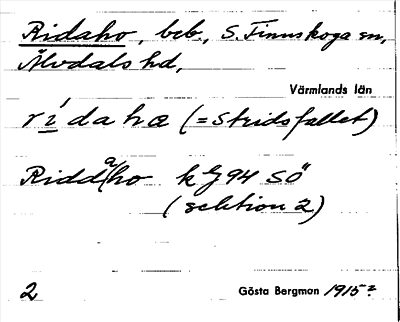 Ridaho, beb., S. Finnskoga sn,
Älvdals hd,
Värmlands län
rídahœ (= stridsfallet)
Riddåho k bl 94 SÖ
(sektion 2)
2 Gösta Bergman 1915?